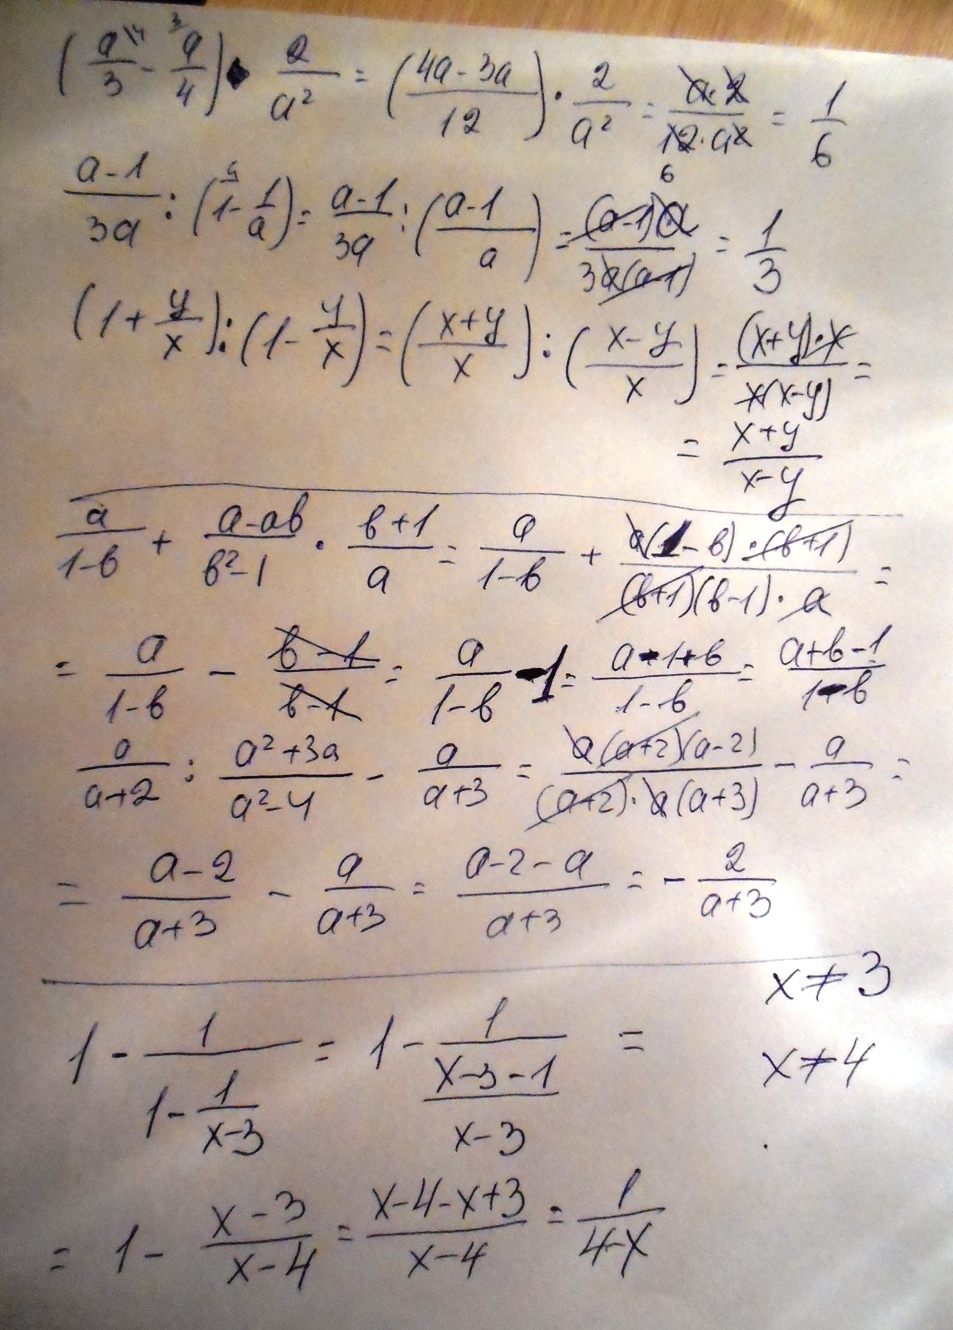 (a\4/3 - 3 a/4) • 2/a² = ((4a-3a)/12) · 2/a² = (a·2)/(12·a²) = 1/6
6
(a-1)/3a : (1 - 1/a) = (a-1)/3a : ((a-1)/a) = ((a-1)·a)/(3a(a-1)) = 1/3
(1 + y/x) : (1 - y/x) = ((x+y)/x) : ((x-y)/x) = ((x+y)·x)/(x(x-y)) =
= (x+y)/(x-y)
a/(1-в) + (a-aв)/(в²-1) · (в+1)/a = a/(1-в) + (a(1-в)·(в+1))/((в+1)(в-1)·a) =
= a/(1-в) - (в-1)/(в-1) = a/(1-в) - 1 = (a-1+в)/(1-в) = (a+в-1)/(1-в)
a/(a+2) : (a²+3a)/(a²-4) - a/(a+3) = (a(a+2)(a-2))/((a+2)·a(a+3)) - a/(a+3) =
= (a-2)/(a+3) - a/(a+3) = (a-2-a)/(a+3) = - 2/(a+3)
x≠3
1 - 1/(1 - 1/(x-3)) = 1 - 1/((x-3-1)/(x-3)) =
x≠4
= 1 - (x-3)/(x-4) = (x-4-x+3)/(x-4) = 1/(4-x)